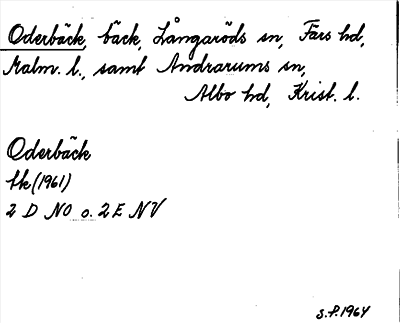 Oderbäck, bäck, Långaröds sn, Färs hd,
Malm. l., samt Andrarums sn,
Albo hd, Krist. l.
Oderbäck
Ek (1961)
2 D NO o. 2 E NV
S.P. 1964